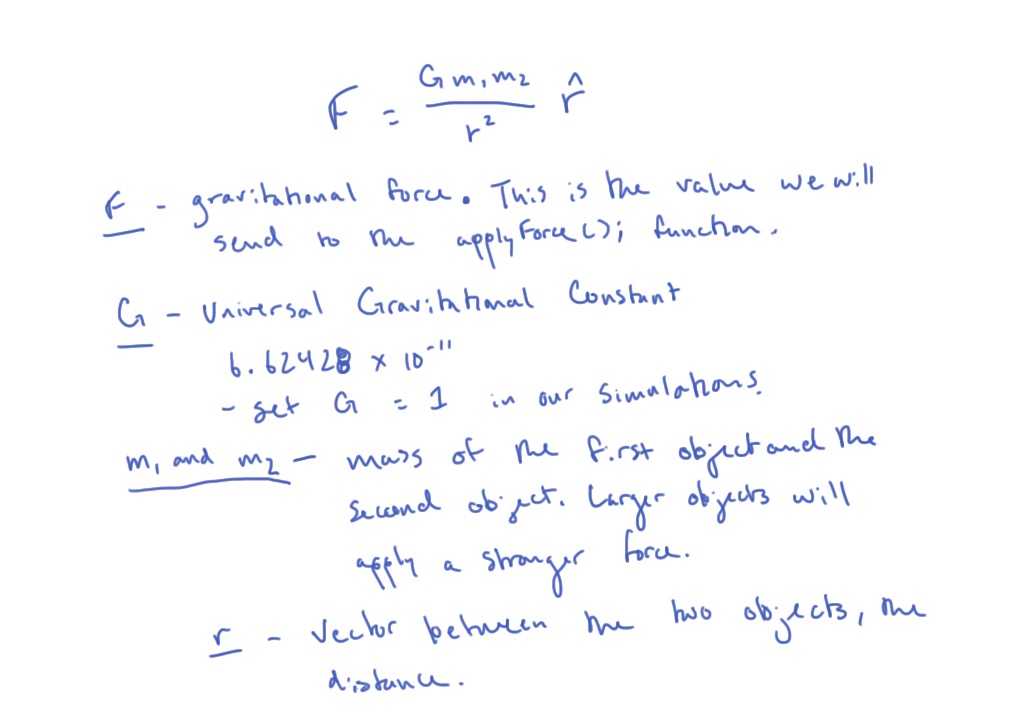 F = G m₁ m₂ / r² r̂
F - gravitational force. This is the value we will
send to the applyForce(); function.
G - Universal Gravitational Constant
6.62428 x 10⁻¹¹
- set G = 1 in our simulations.
m₁ and m₂ - mass of the first object and the
second object. Larger objects will
apply a stronger force.
r - vector between the two objects, the
distance.